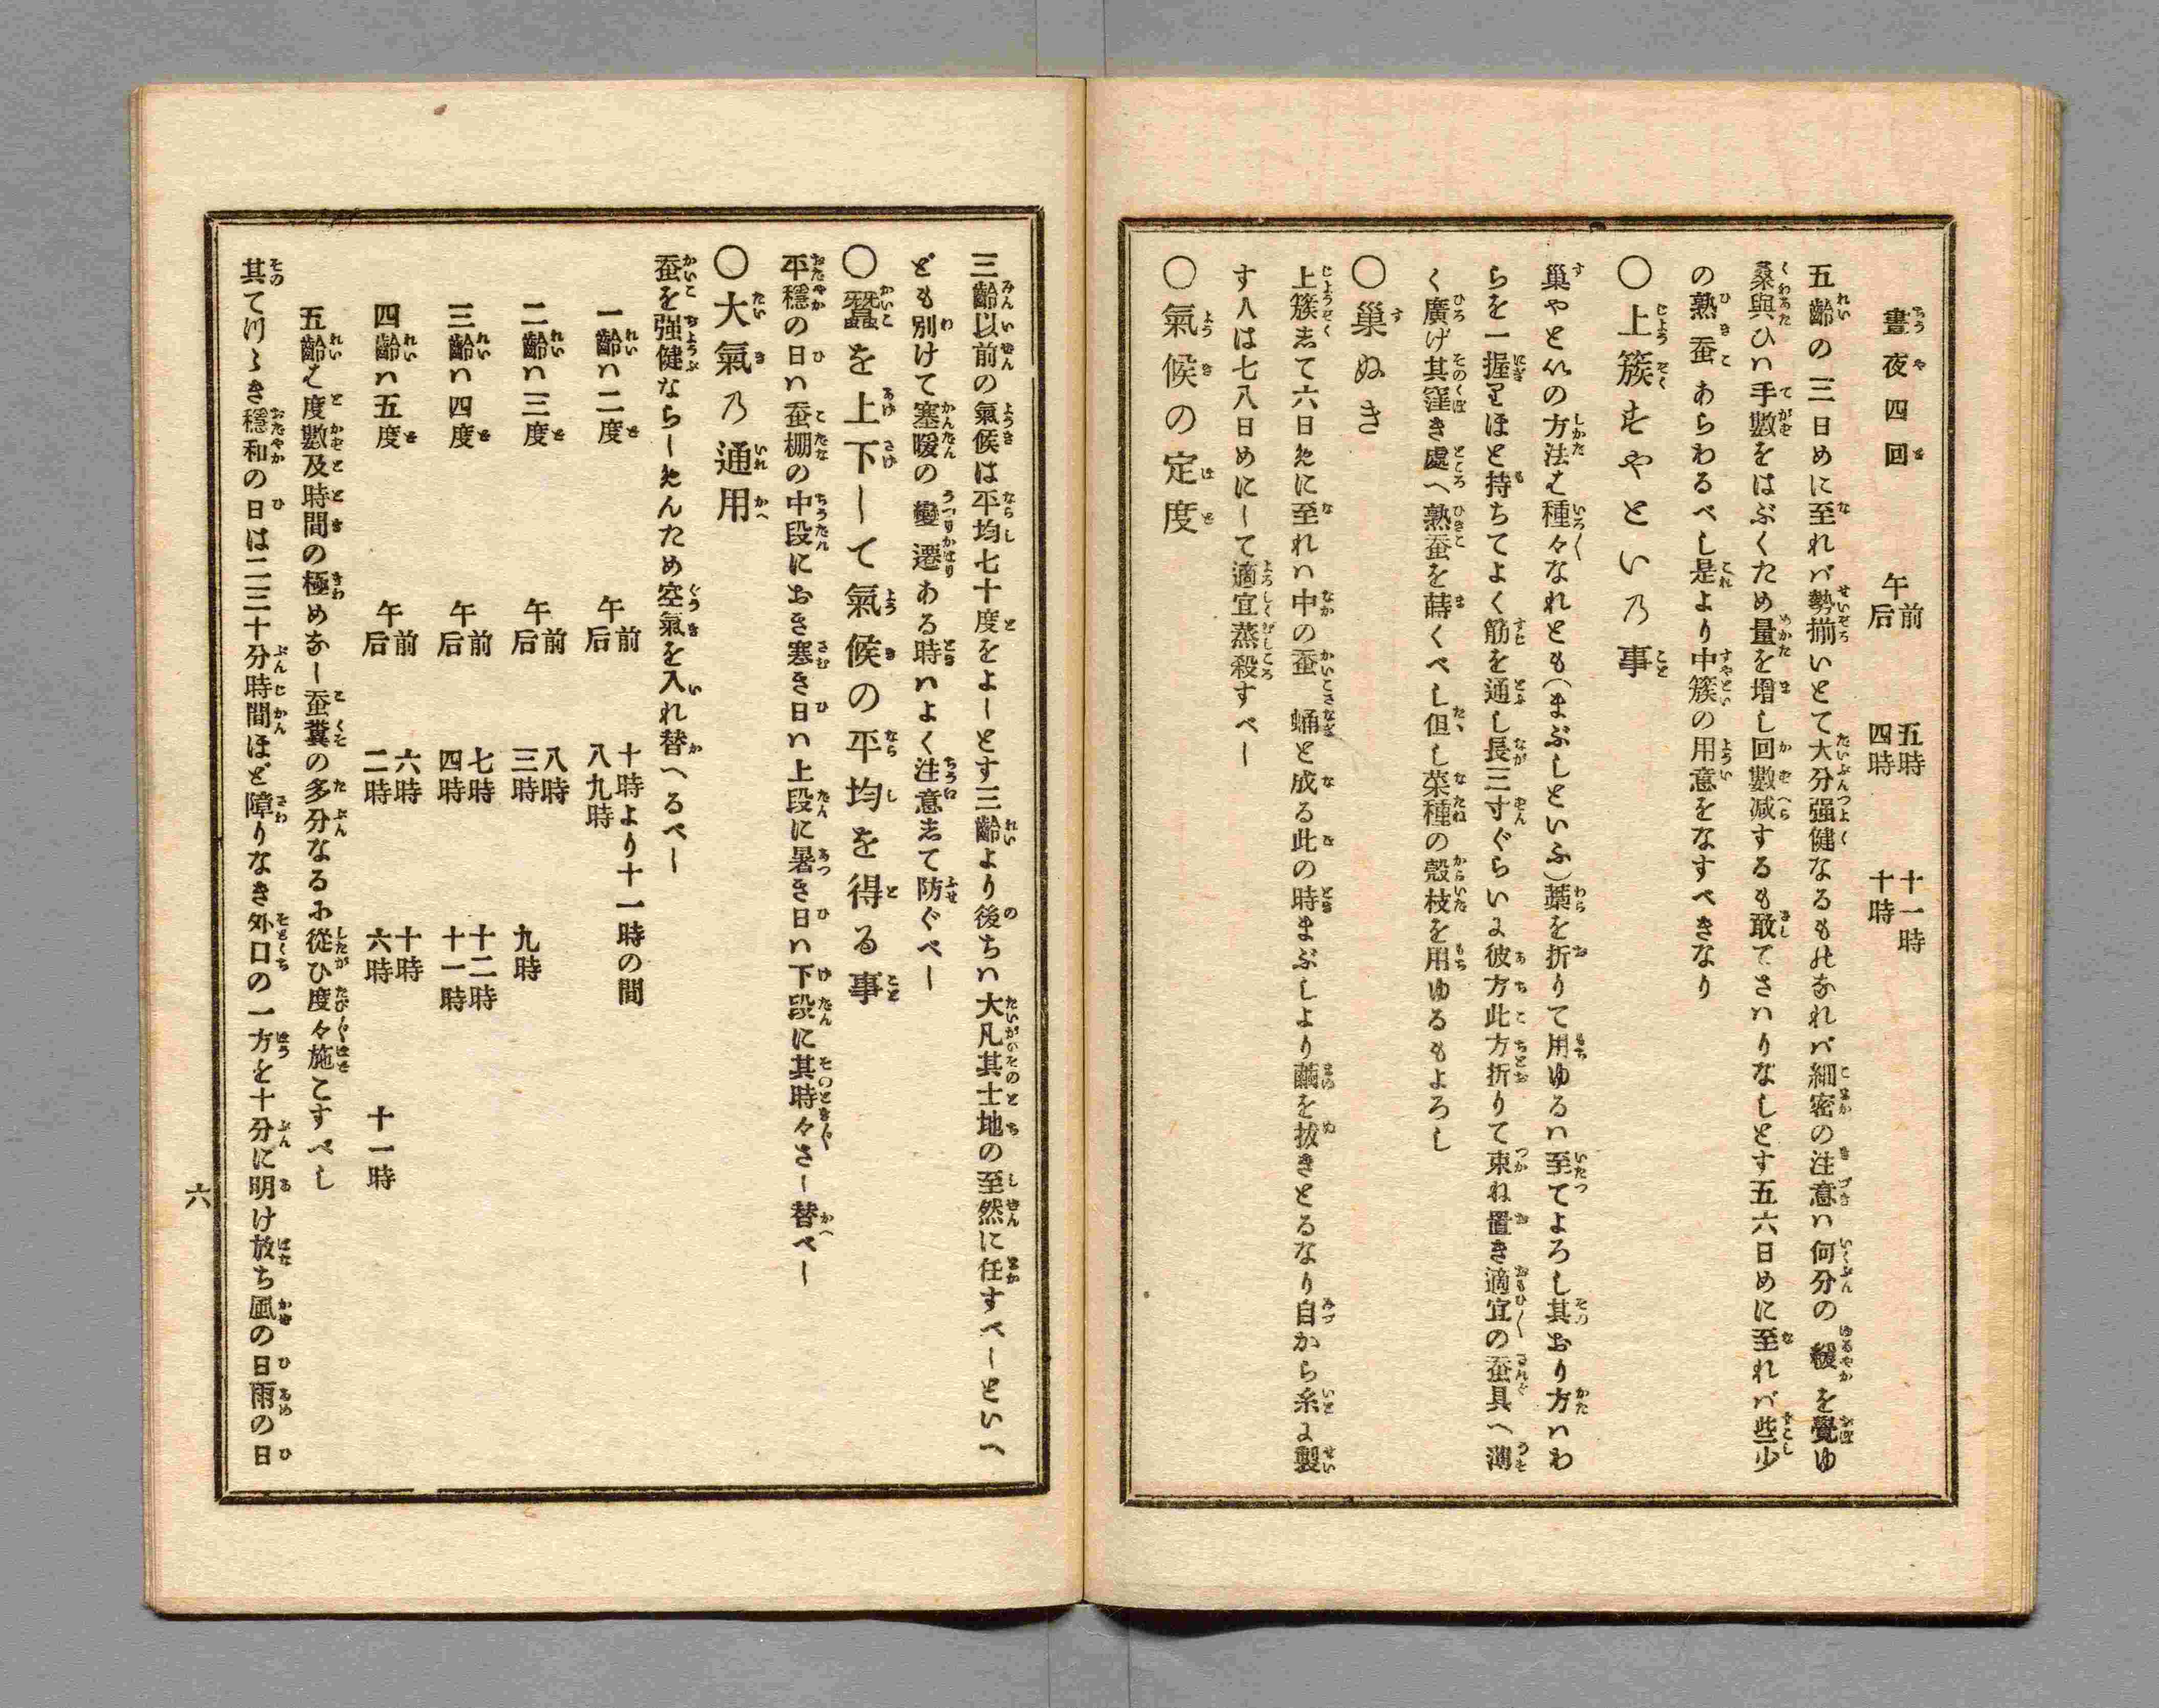 晝夜四回 午前 五時 十一時
午后 四時 十時
五齡の三日めに至れバ勢揃いとて大分强健なるものなれバ細密の注意ハ何分の緩を覺ゆ
桑與ひハ手數をはぶくため量を增し回數減するも敢てさハりなしとす五六日めに至れバ些少
の熟蚕あらわるべし是より中簇の用意をなすべきなり
〇上簇すやとい乃事
巣やといの方法は種々なれとも(まぶしといふ)藁を折りて用ゆるハ至てよろし其おり方ハわ
らを一握りほと持ちてよく筋を通し長三寸ぐらいに彼方此方折りて束ね置き適宜の蚕具へ薄
く廣げ其窪き處へ熟蚕を蒔くべし但し菜種の殼枝を用ゆるもよろし
〇巣ぬき
上簇して六日めに至れハ中の蚕蛹と成る此の時まぶしより繭を拔きとるなり自から糸に製
す人は七八日めにして適宜蒸殺すべし
〇氣候の定度
三齡以前の氣候は平均七十度をよしとす三齡より後ちハ大凡其土地の至然に任すべしといへ
ども別けて塞暖の變遷ある時ハよく注意して防ぐべし
〇蠶を上下して氣候の平均を得る事
平穩の日ハ蚕棚の中段におき寒き日ハ上段に暑き日ハ下段に其時々さし替べし
〇大氣乃通用
蚕を强健ならしめんため空氣を入れ替へるべし
一齡ハ二度 午前 十時より十一時の間
午后 八九時
二齡ハ三度 午前 八時
午后 三時 九時
三齡ハ四度 午前 七時 十二時
午后 四時 十一時
四齡ハ五度 午前 六時 十時
午后 二時 六時 十一時
五齡は度數及時間の極めなし蚕糞の多分なるに從ひ度々施こすべし
其てけゝき穩和の日は二三十分時間ほど障りなき外口の一方を十分に明け放ち風の日雨の日
六